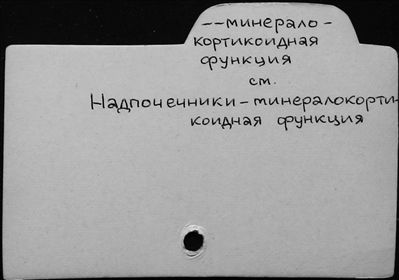 --минерало-
кортикоидная
функция
см.
Надпочечники-минералокорти-
коидная функция